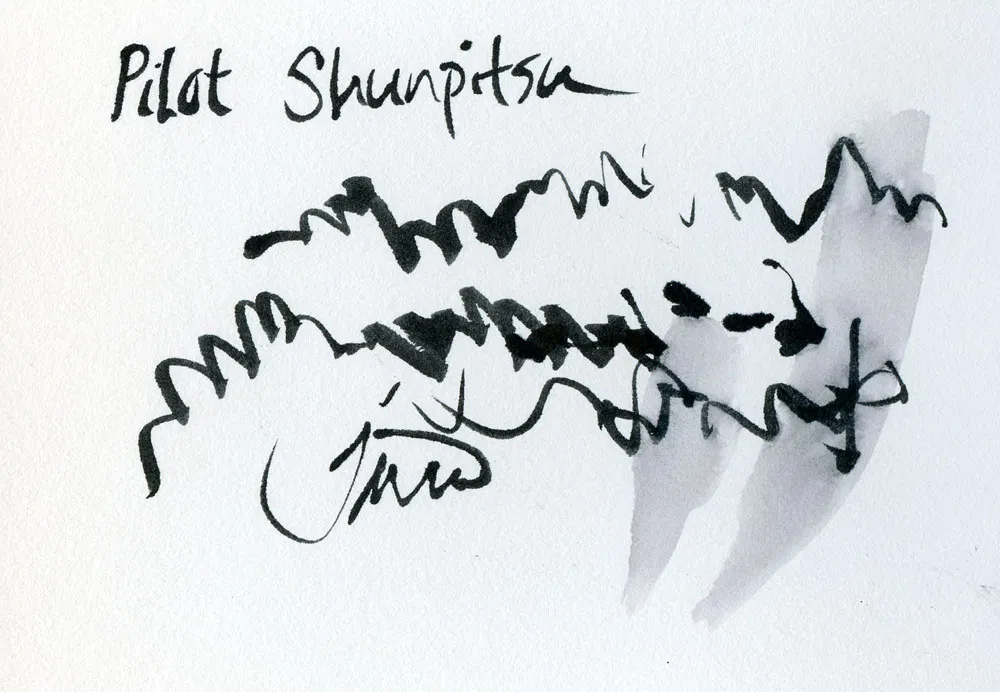 Pilot Shunpitsu